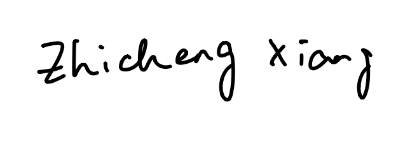 Zhicheng Xiang